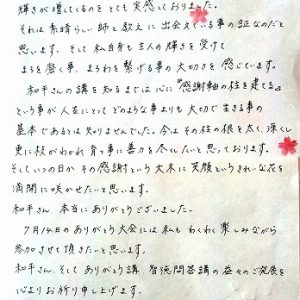 輝きが増してくるのをとても実感しておりました。
それは素晴らしい師と教えに出会えている事の証なのだと
思います。そして私自身も主人の輝きを受けて
まろを磨く事、まろわを繋げる事の大切さを感じています。
和平さんの講を知るまでは心に『感謝軸の柱を建てる』
という事が人生にとってどのような事よりも大切で生きる事の
基本であるとは知りませんでした。今はその柱の根を太く、深くし
更に枝がわかれ育つ事に善力を尽くしたいと思っております。
そしていつの日かその感謝という大木に笑顔というきれいな花を
満開に咲かせたいと思います。
和平さん 本当にありがとうございました。
7月14日のありがとう大会には私もわくわく楽しみながら
参加させて頂きたいと思います。
和平さん、そしてありがとう講 智徳問答講の益々のご発展を
心よりお祈り申し上げます。